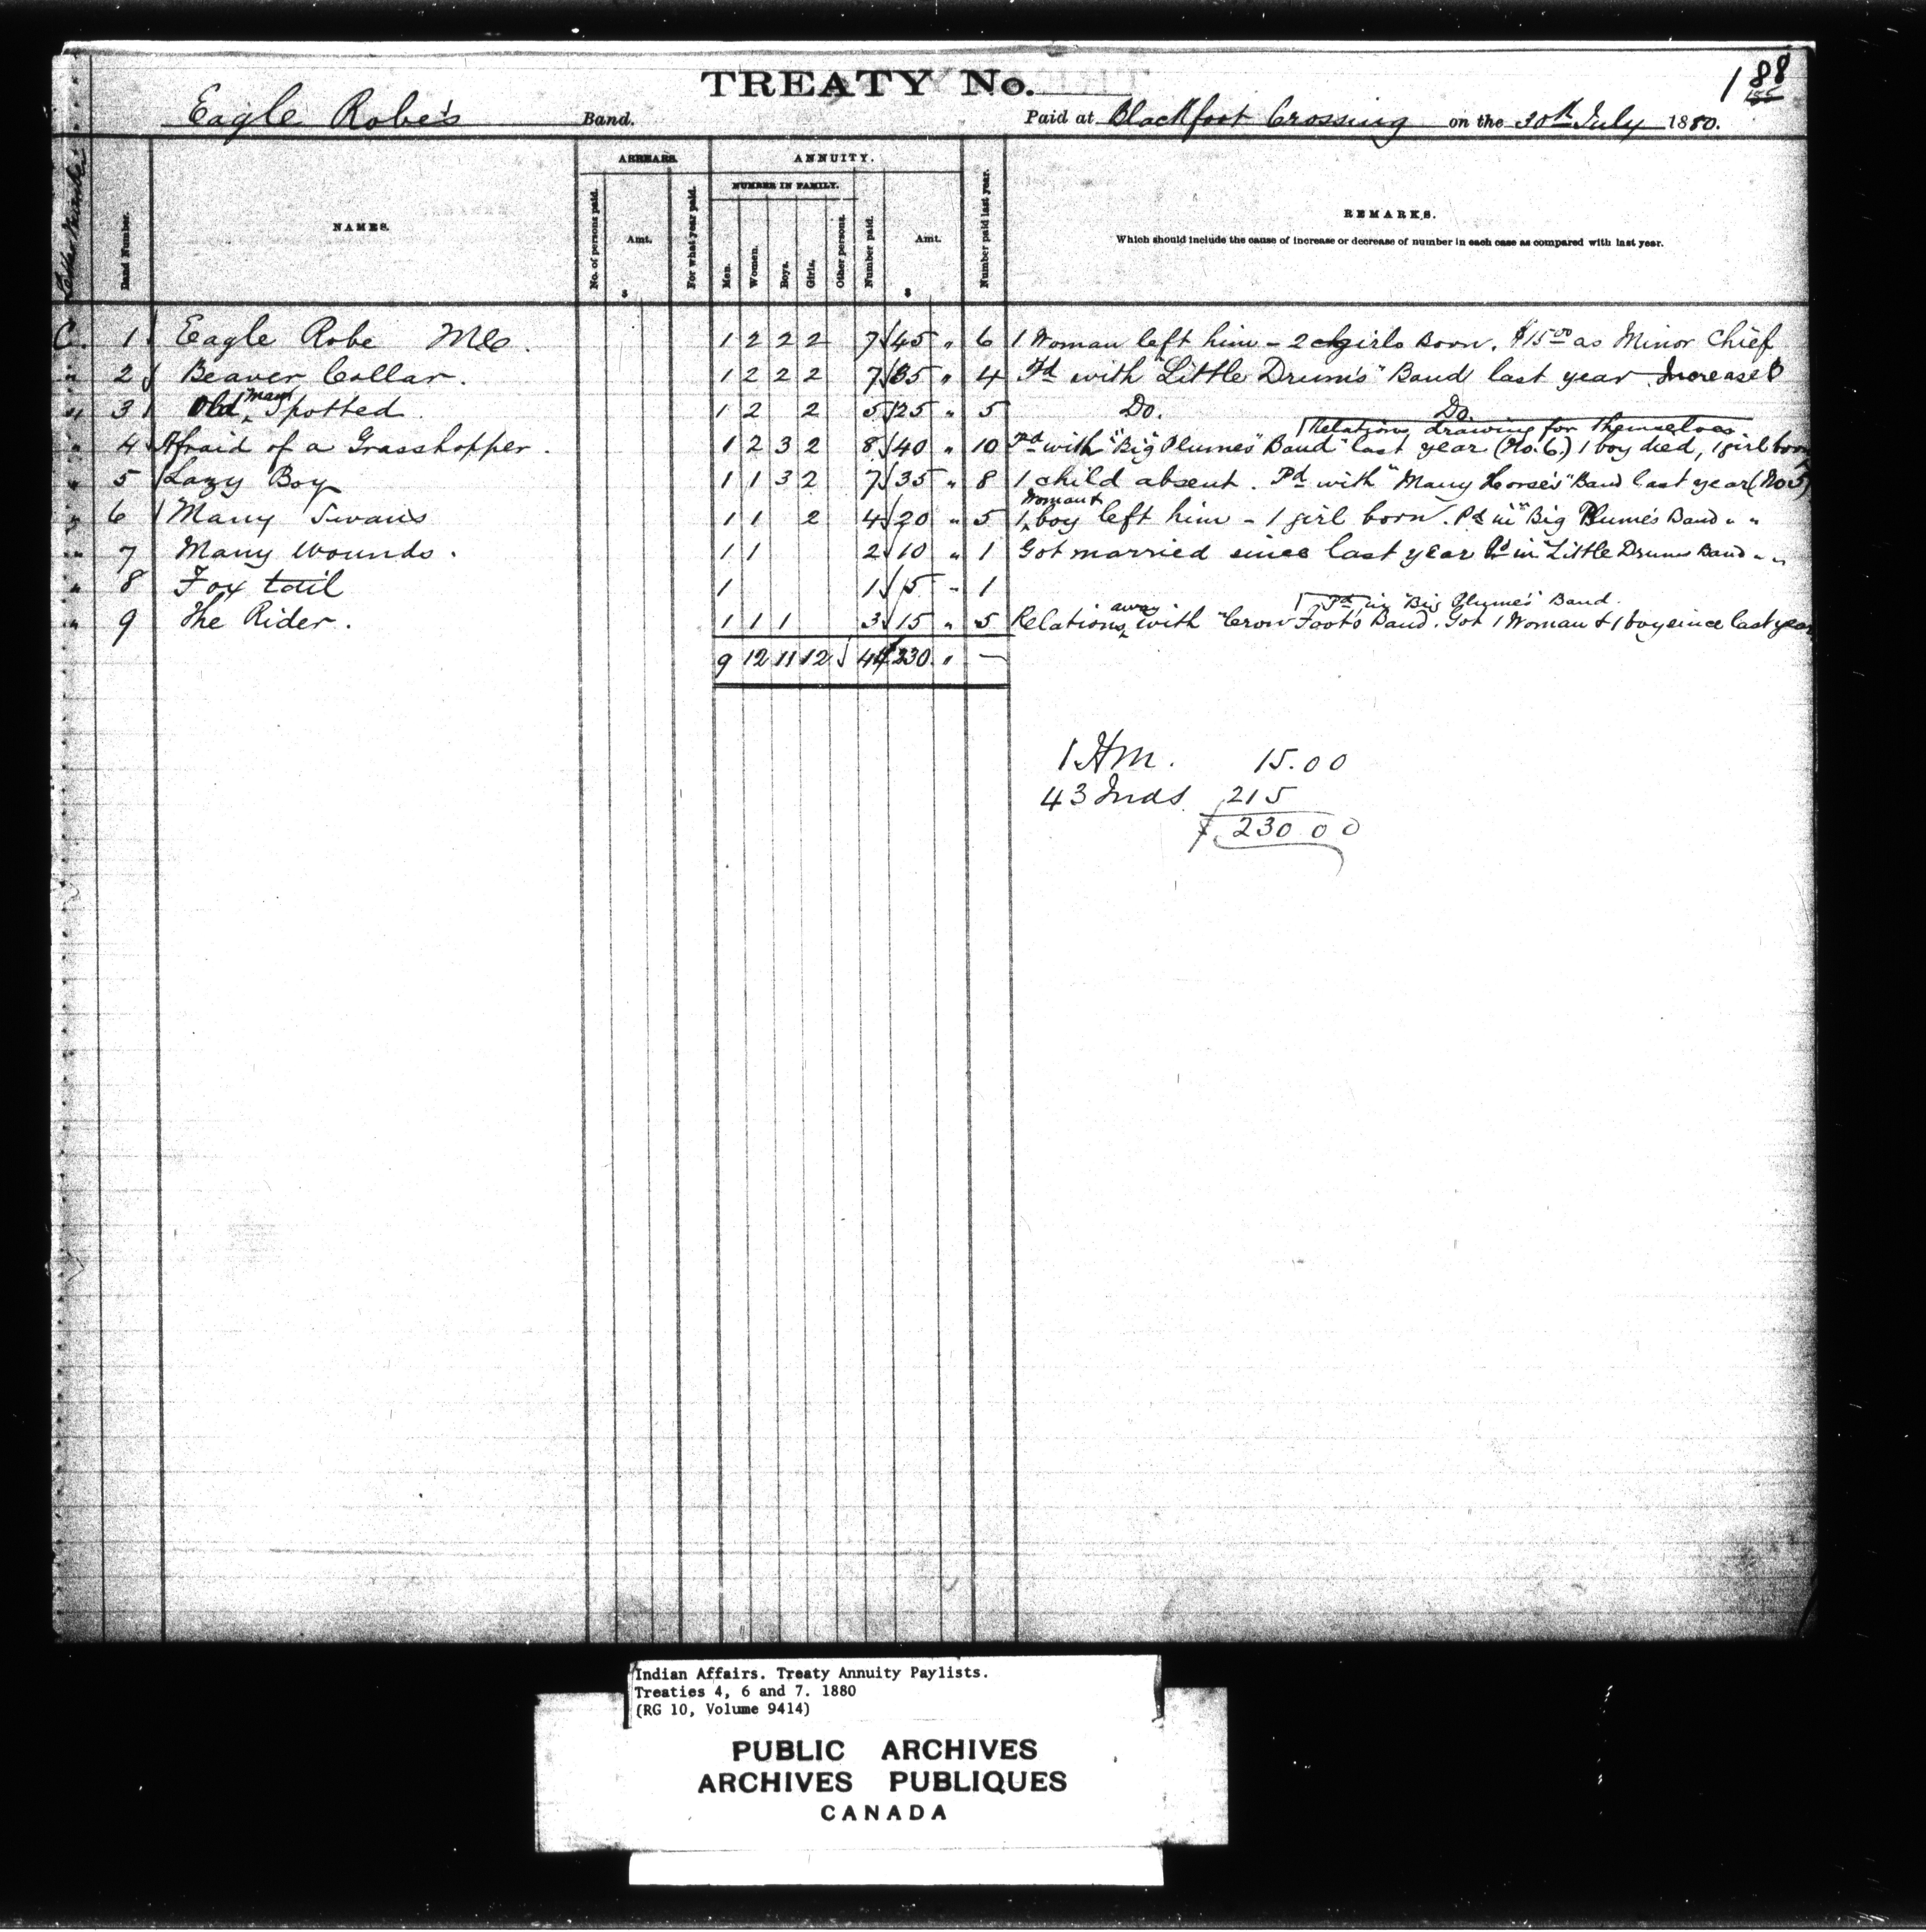 TREATY No.
188
Eagle Robe's Band. Paid at Blackfoot Crossing on the 30th July 1880.
ARREARS. ANNUITY.
NUMBER IN FAMILY.
Band Number. NAMES. No. of persons paid. Amt. $ For what year paid. Men. Women. Boys. Girls. Other persons. Number paid. Amt. $ Number paid last year. REMARKS.
Which should include the cause of increase or decrease of number in each case as compared with last year.
C. 1 Eagle Robe M C. 1 2 2 2 7 45 " 6 1 Woman left him - 2 girls Born. $15.00 as Minor Chief
" 2 Beaver Collar. 1 2 2 2 7 35 " 4 Pd with "Little Drum's" Band last year Increase
" 3 Old Man Spotted. 1 2 2 5 25 " 5 Do. Do.
Relations drawing for themselves
" 4 Afraid of a Grasshopper. 1 2 3 2 8 40 " 10 Pd with "Big Plume's Band" last year (No. 6.) 1 boy died, 1 girl born
" 5 Lazy Boy 1 1 3 2 7 35 " 8 1 child absent. Pd with "Many Horses" Band last year (No 5)
" 6 Many Swans 1 1 2 4 20 " 5 1 Woman & boy left him - 1 girl born. Pd in "Big Plume's Band " "
" 7 Many Wounds. 1 1 2 10 " 1 Got married since last year Pd in "Little Drums Band " "
" 8 Fox tail 1 1 5 " 1
Pd in "Big Plume's" Band.
" 9 The Rider. 1 1 1 3 15 " 5 Relations away with "Crow Foot's Band. Got 1 Woman & 1 boy since last year
9 12 11 12 44 230 " —
1 HM. 15.00
43 Inds. 215
$ 230 00
Indian Affairs. Treaty Annuity Paylists.
Treaties 4, 6 and 7. 1880
(RG 10, Volume 9414)
PUBLIC ARCHIVES
ARCHIVES PUBLIQUES
CANADA